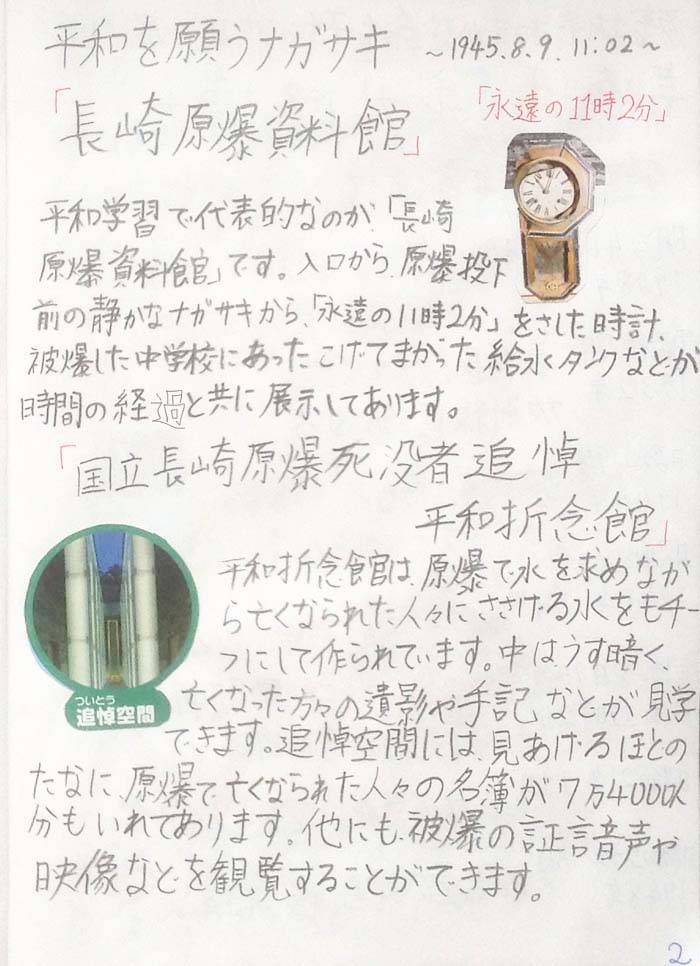 平和を願うナガサキ ～1945.8.9. 11:02～
「長崎原爆資料館」
「永遠の11時2分」
平和学習で代表的なのが、「長崎
原爆資料館」です。入口から、原爆投下
前の静かなナガサキから、「永遠の11時2分」をさした時計、
被爆した中学校にあったこげてまがった給水タンクなどが
時間の経過と共に展示してあります。
「国立長崎原爆死没者追悼
平和折念館」
平和折念館は、原爆で水を求めなが
ら亡くなられた人々にささげる水をモチー
フにして作られています。中はうす暗く、
亡くなった方々の遺影や手記などが見学
できます。追悼空間には、見あげるほどの
たなに、原爆で亡くなられた人々の名簿が7万4000人
分もいれてあります。他にも、被爆の証言音声や
映像などを観覧することができます。
ついとう
追悼空間
2